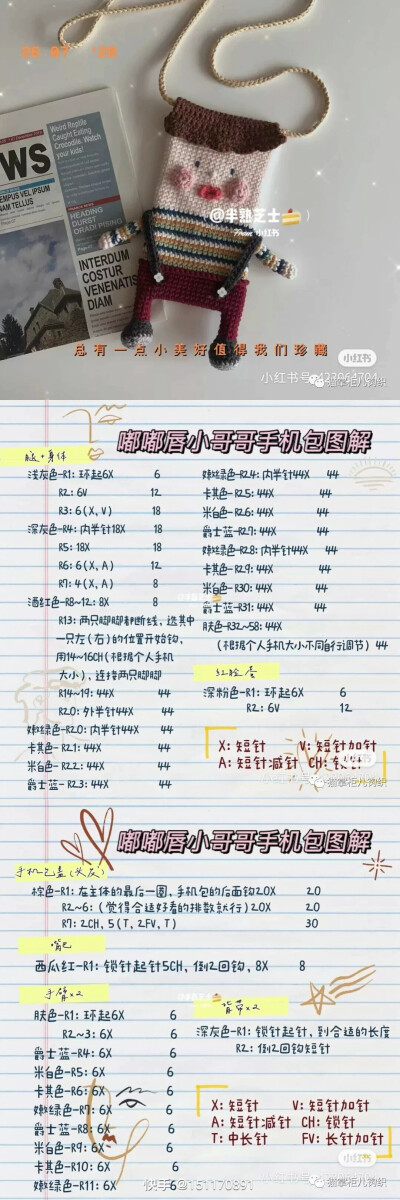 25 07 '28
Weird Reptile
Caught Eating
Crocodile. Watch
your kids!
WS
EMPUS VEL IPSUM
AM TELLUS
HEADING
DURST
ORADI PISING
INTERDUM
COSTUR
VENENATIS
DIAM
@半熟芝士🍰
小红书
总有一点小美好值得我们珍藏
小红书
嘟嘟唇小哥哥手机包图解
腿+身体
浅灰色-R1: 环起6X 6
R2: 6V 12
R3: 6(X, V) 18
深灰色-R4: 内半针18X 18
R5: 18X 18
R6: 6(X, A) 12
R7: 4(X, A) 8
酒红色-R8~12: 8X 8
R13: 两只脚脚都断线, 选其中
一只左(右)的位置开始钩,
用14~16CH(根据个人手机
大小), 连接两只脚脚
R14~19: 44X 44
R20: 外半针44X 44
嫩绿色-R20: 内半针44X 44
卡其色-R21: 44X 44
米白色-R22: 44X 44
爵士蓝-R23: 44X 44
嫩绿色-R24: 内半针44X 44
卡其色-R25: 44X 44
米白色-R26: 44X 44
爵士蓝-R27: 44X 44
嫩绿色-R28: 内半针44X 44
卡其色-R29: 44X 44
米白色-R30: 44X 44
爵士蓝-R31: 44X 44
肤色-R32~58: 44X
(根据个人手机大小不同自行调节) 44
红脸蛋
深粉色-R1: 环起6X 6
R2: 6V 12
X: 短针 V: 短针加针
A: 短针减针 CH: 锁针
嘟嘟唇小哥哥手机包图解
棕色-R1: 在主体的最后一圈, 手机包的后面钩20X 20
R2~6: (觉得合适好看的排数就行)20X 20
R7: 2CH, 5(T, 2FV, T) 30
嘴巴
西瓜红-R1: 锁针起针5CH, 倒2回钩, 8X 8
手臂x2
肤色-R1: 环起6X 6
R2~3: 6X 6
爵士蓝-R4: 6X 6
米白色-R5: 6X 6
卡其色-R6: 6X 6
嫩绿色-R7: 6X 6
爵士蓝-R8: 6X 6
米白色-R9: 6X 6
卡其色-R10: 6X 6
嫩绿色-R11: 6X 6
背带x2
深灰色-R1: 锁针起针, 到合适的长度
R2: 倒2回钩短针
X: 短针 V: 短针加针
A: 短针减针 CH: 锁针
T: 中长针 FV: 长针加针
小红书
快手 @151170891